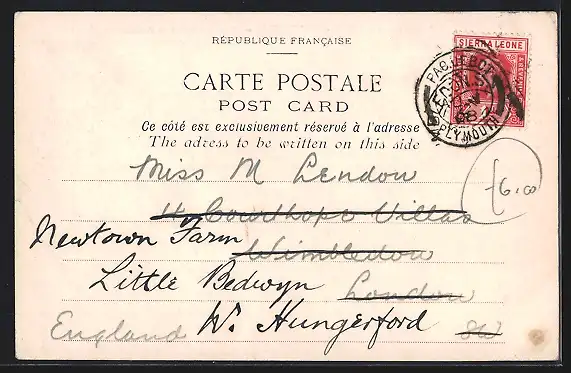 RÉPUBLIQUE FRANÇAISE
SIERRA LEONE
CARTE POSTALE
POST CARD
PLYMOUTH
Ce côté est exclusivement réservé à l'adresse
The adress to be written on this side
Miss M Lendon
4 Courthope Villas
£6.00
Newtown Farm
Wimbledon
Little Bedwyn
London
England
Nr. Hungerford
SW